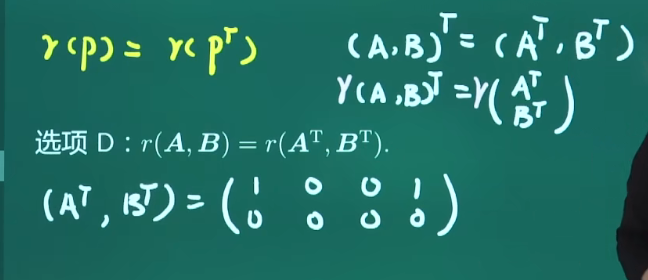 r(P) = r(Pᵀ)
(A,B)ᵀ = (Aᵀ, Bᵀ)
r(A,B)ᵀ = r(Aᵀ
Bᵀ)
选项 D：r(A, B) = r(Aᵀ, Bᵀ).
(Aᵀ, Bᵀ) = (1 0 0 1
0 0 0 0)